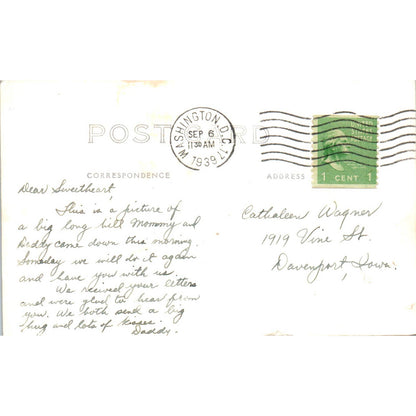 POST CARD
WASHINGTON, D.C. 17
SEP 6
11 30 AM
1939
UNITED STATES POSTAGE
1 CENT 1
CORRESPONDENCE
ADDRESS
Dear Sweetheart,
This is a picture of
a big long hill Mommy and
Daddy came down this morning.
Someday we will do it again
and have you with us.
We recived your letters
and were glad to hear from
you. We both send a big
hug and lots of kisses.
Daddy.
Cathaleen Wagner
1919 Vine St.
Davenport, Iowa.